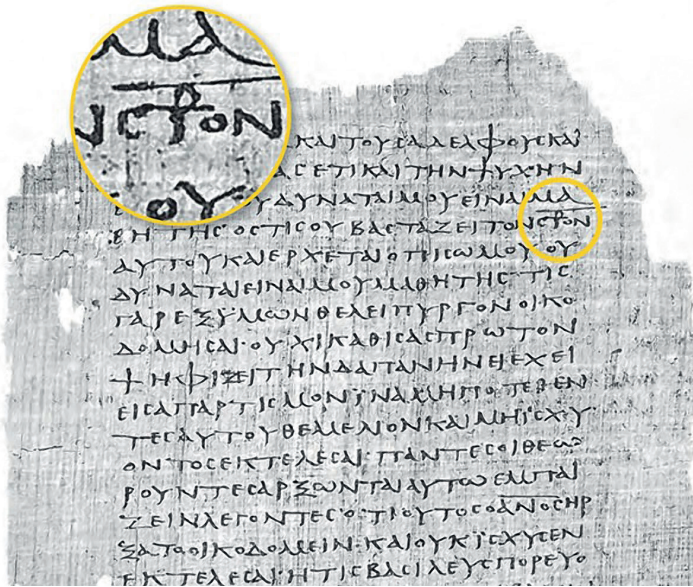 ΜΑ
Ν Ϲ⳨ΟΝ
ΟΥ
ΚΑΙΤΟΥϹΑΔΕΛΦΟΥϹΚΑΙ
ΑϹΕΤΙΚΑΙΤΗΝΨΥΧΗΝ
ΥΔΥΝΑΤΑΙΜΟΥΕΙΝΑΙΜΑ
ΘΗΤΗϹΟϹΤΙϹΟΥΒΑϹΤΑΖΕΙΤΟΝϹ⳨ΟΝ
ΑΥΤΟΥΚΑΙΕΡΧΕΤΑΙΟΠΙϹΩΜΟΥΟΥ
ΔΥΝΑΤΑΙΕΙΝΑΙΜΟΥΜΑΘΗΤΗϹΤΙϹ
ΓΑΡΕΞΥΜΩΝΘΕΛΕΙΠΥΡΓΟΝΟΙΚΟ
ΔΟΜΗϹΑΙ·ΟΥΧΙΚΑΘΙϹΑϹΠΡΩΤΟΝ
ΨΗΦΙΖΕΙΤΗΝΔΑΠΑΝΗΝΕΙΕΧΕΙ
ΕΙϹΑΠΑΡΤΙϹΜΟΝΙΝΑΜΗΠΟΤΕΘΕΝ
ΤΕϹΑΥΤΟΥΘΕΜΕΛΙΟΝΚΑΙΜΗΙϹΧΥ
ΟΝΤΟϹΕΚΤΕΛΕϹΑΙ·ΠΑΝΤΕϹΟΙΘΕΩ
ΡΟΥΝΤΕϹΑΡΞΩΝΤΑΙΑΥΤΩΕΜΠΑΙ
ΖΕΙΝΛΕΓΟΝΤΕϹΟΤΙΟΥΤΟϹΟΑΝΟϹΗΡ
ΞΑΤΟΟΙΚΟΔΟΜΕΙΝ·ΚΑΙΟΥΚΙϹΧΥϹΕΝ
ΕΚΤΕΛΕϹΑΙ·ΗΤΙϹΒΑϹΙΛΕΥϹΠΟΡΕΥΟ